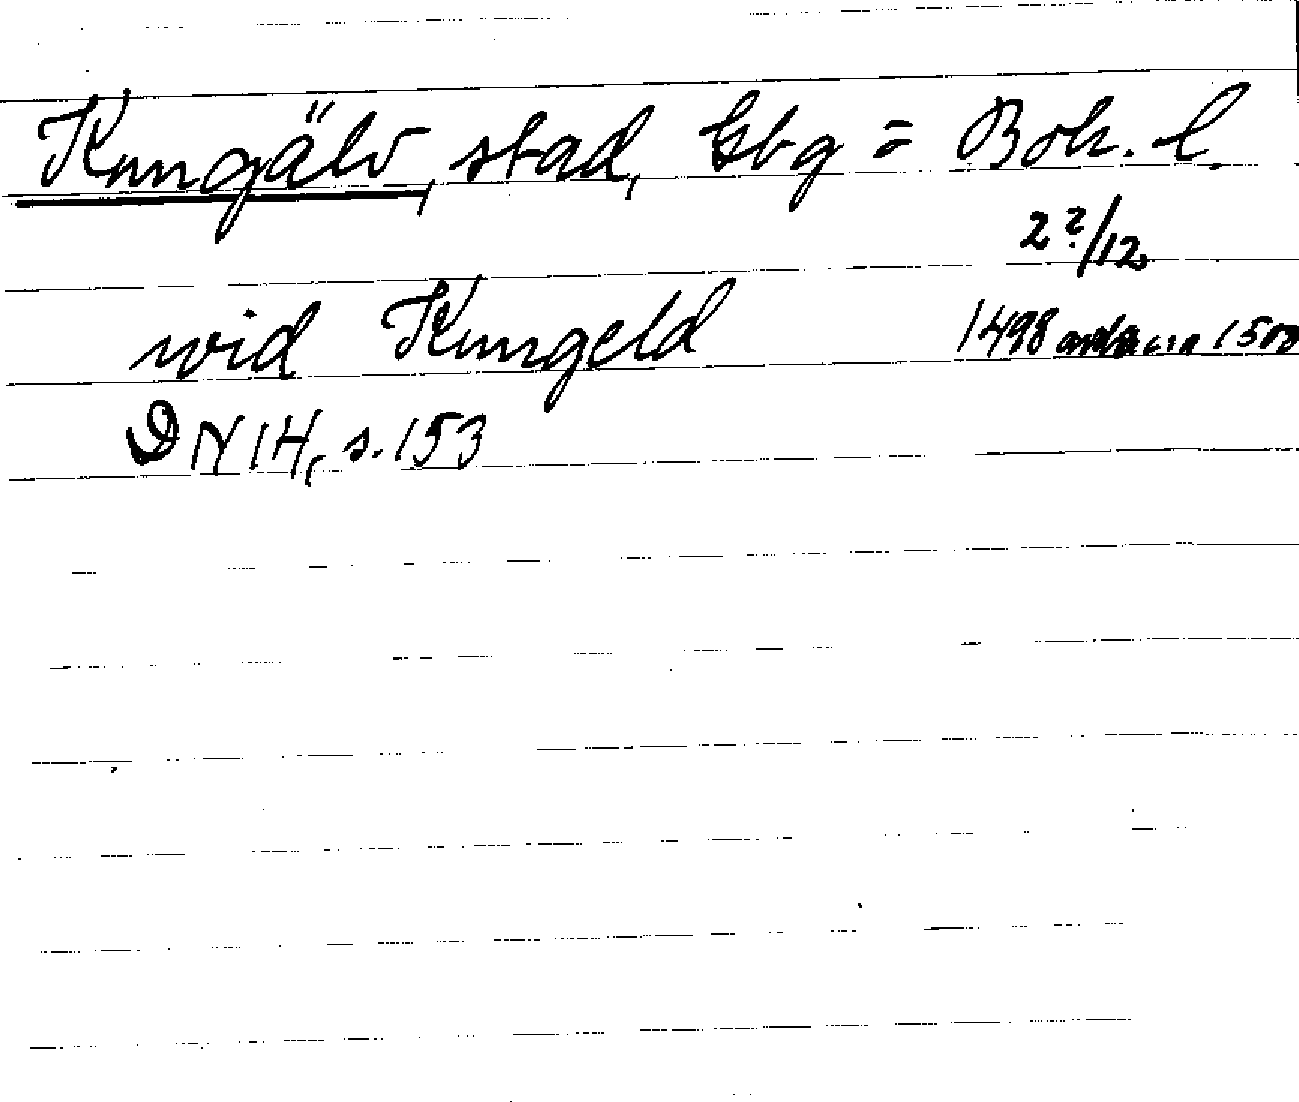 Kungälv, stad, Gbg = Boh. l.
2?/12
wid Kungeld 1498 1500
DN 14, s. 153